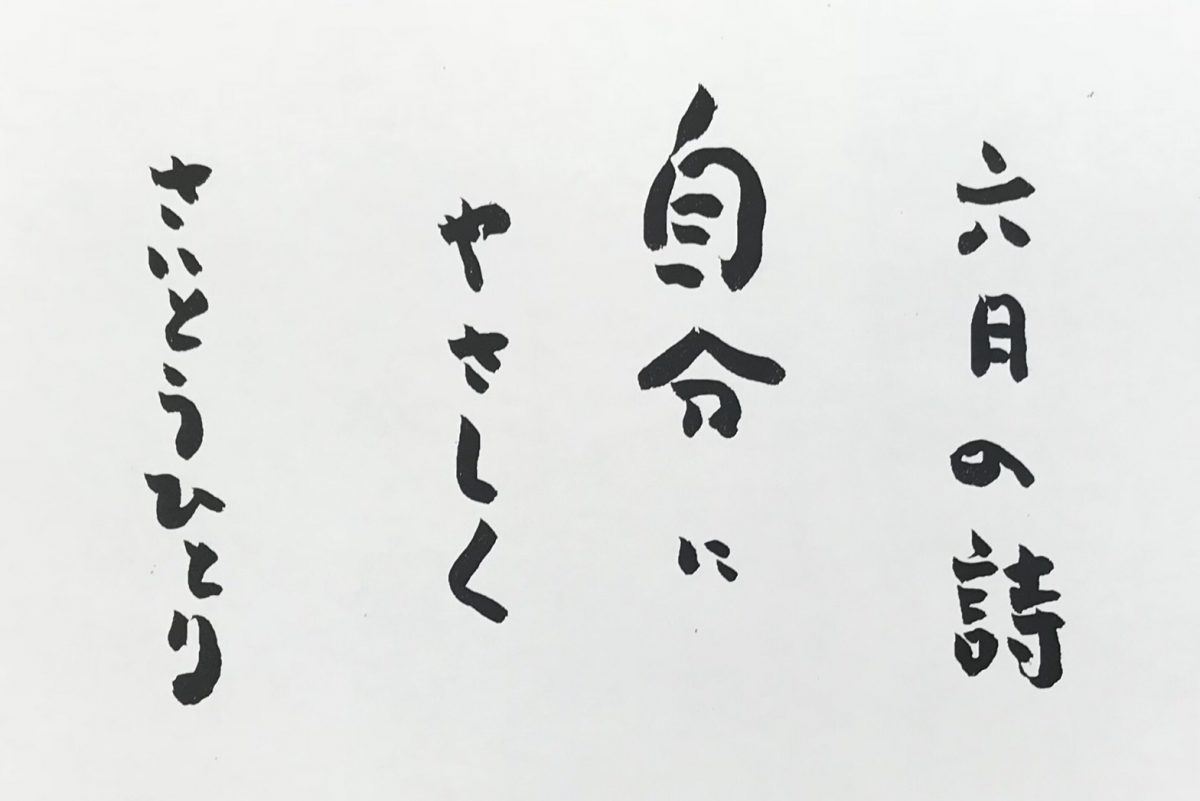 六日の詩
自分に
やさしく
さいとうひとり